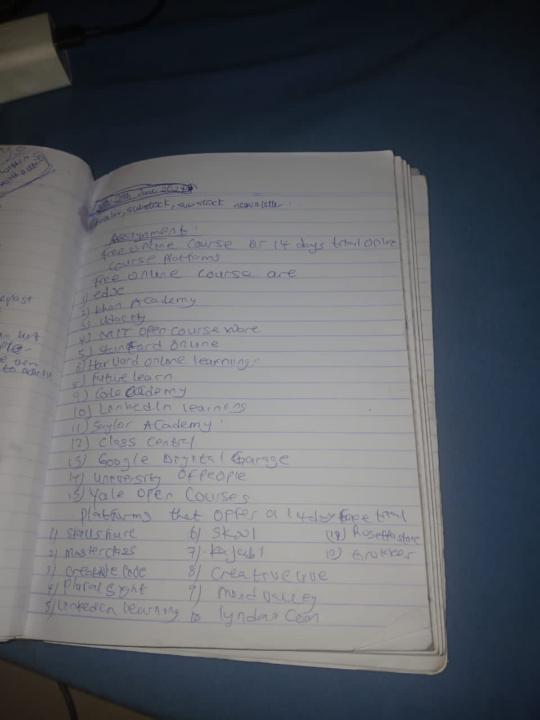 substack, substack newsletter.
Assignment:
free online course or 14 days trial online
course platforms
free online course are
1) edx
2) khan Academy
3) udacity
4) MIT open course ware
5) stanford online
6) Harvard online learning
8) future learn
9) Code academy
10) LinkedIn learning
11) Saylor Academy
12) Class Central
13) Google Digital Garage
14) University of people
15) Yale open Courses
Platforms that offer a 14 day free trial
1) Skillshare
2) Masterclass
3) Creative code
4) Plural sight
5) LinkedIn learning
6) Skool
7) Kajabi
8) Creative live
9) Mind valley
10 lynda.com
(11) Rosetta stone
12)